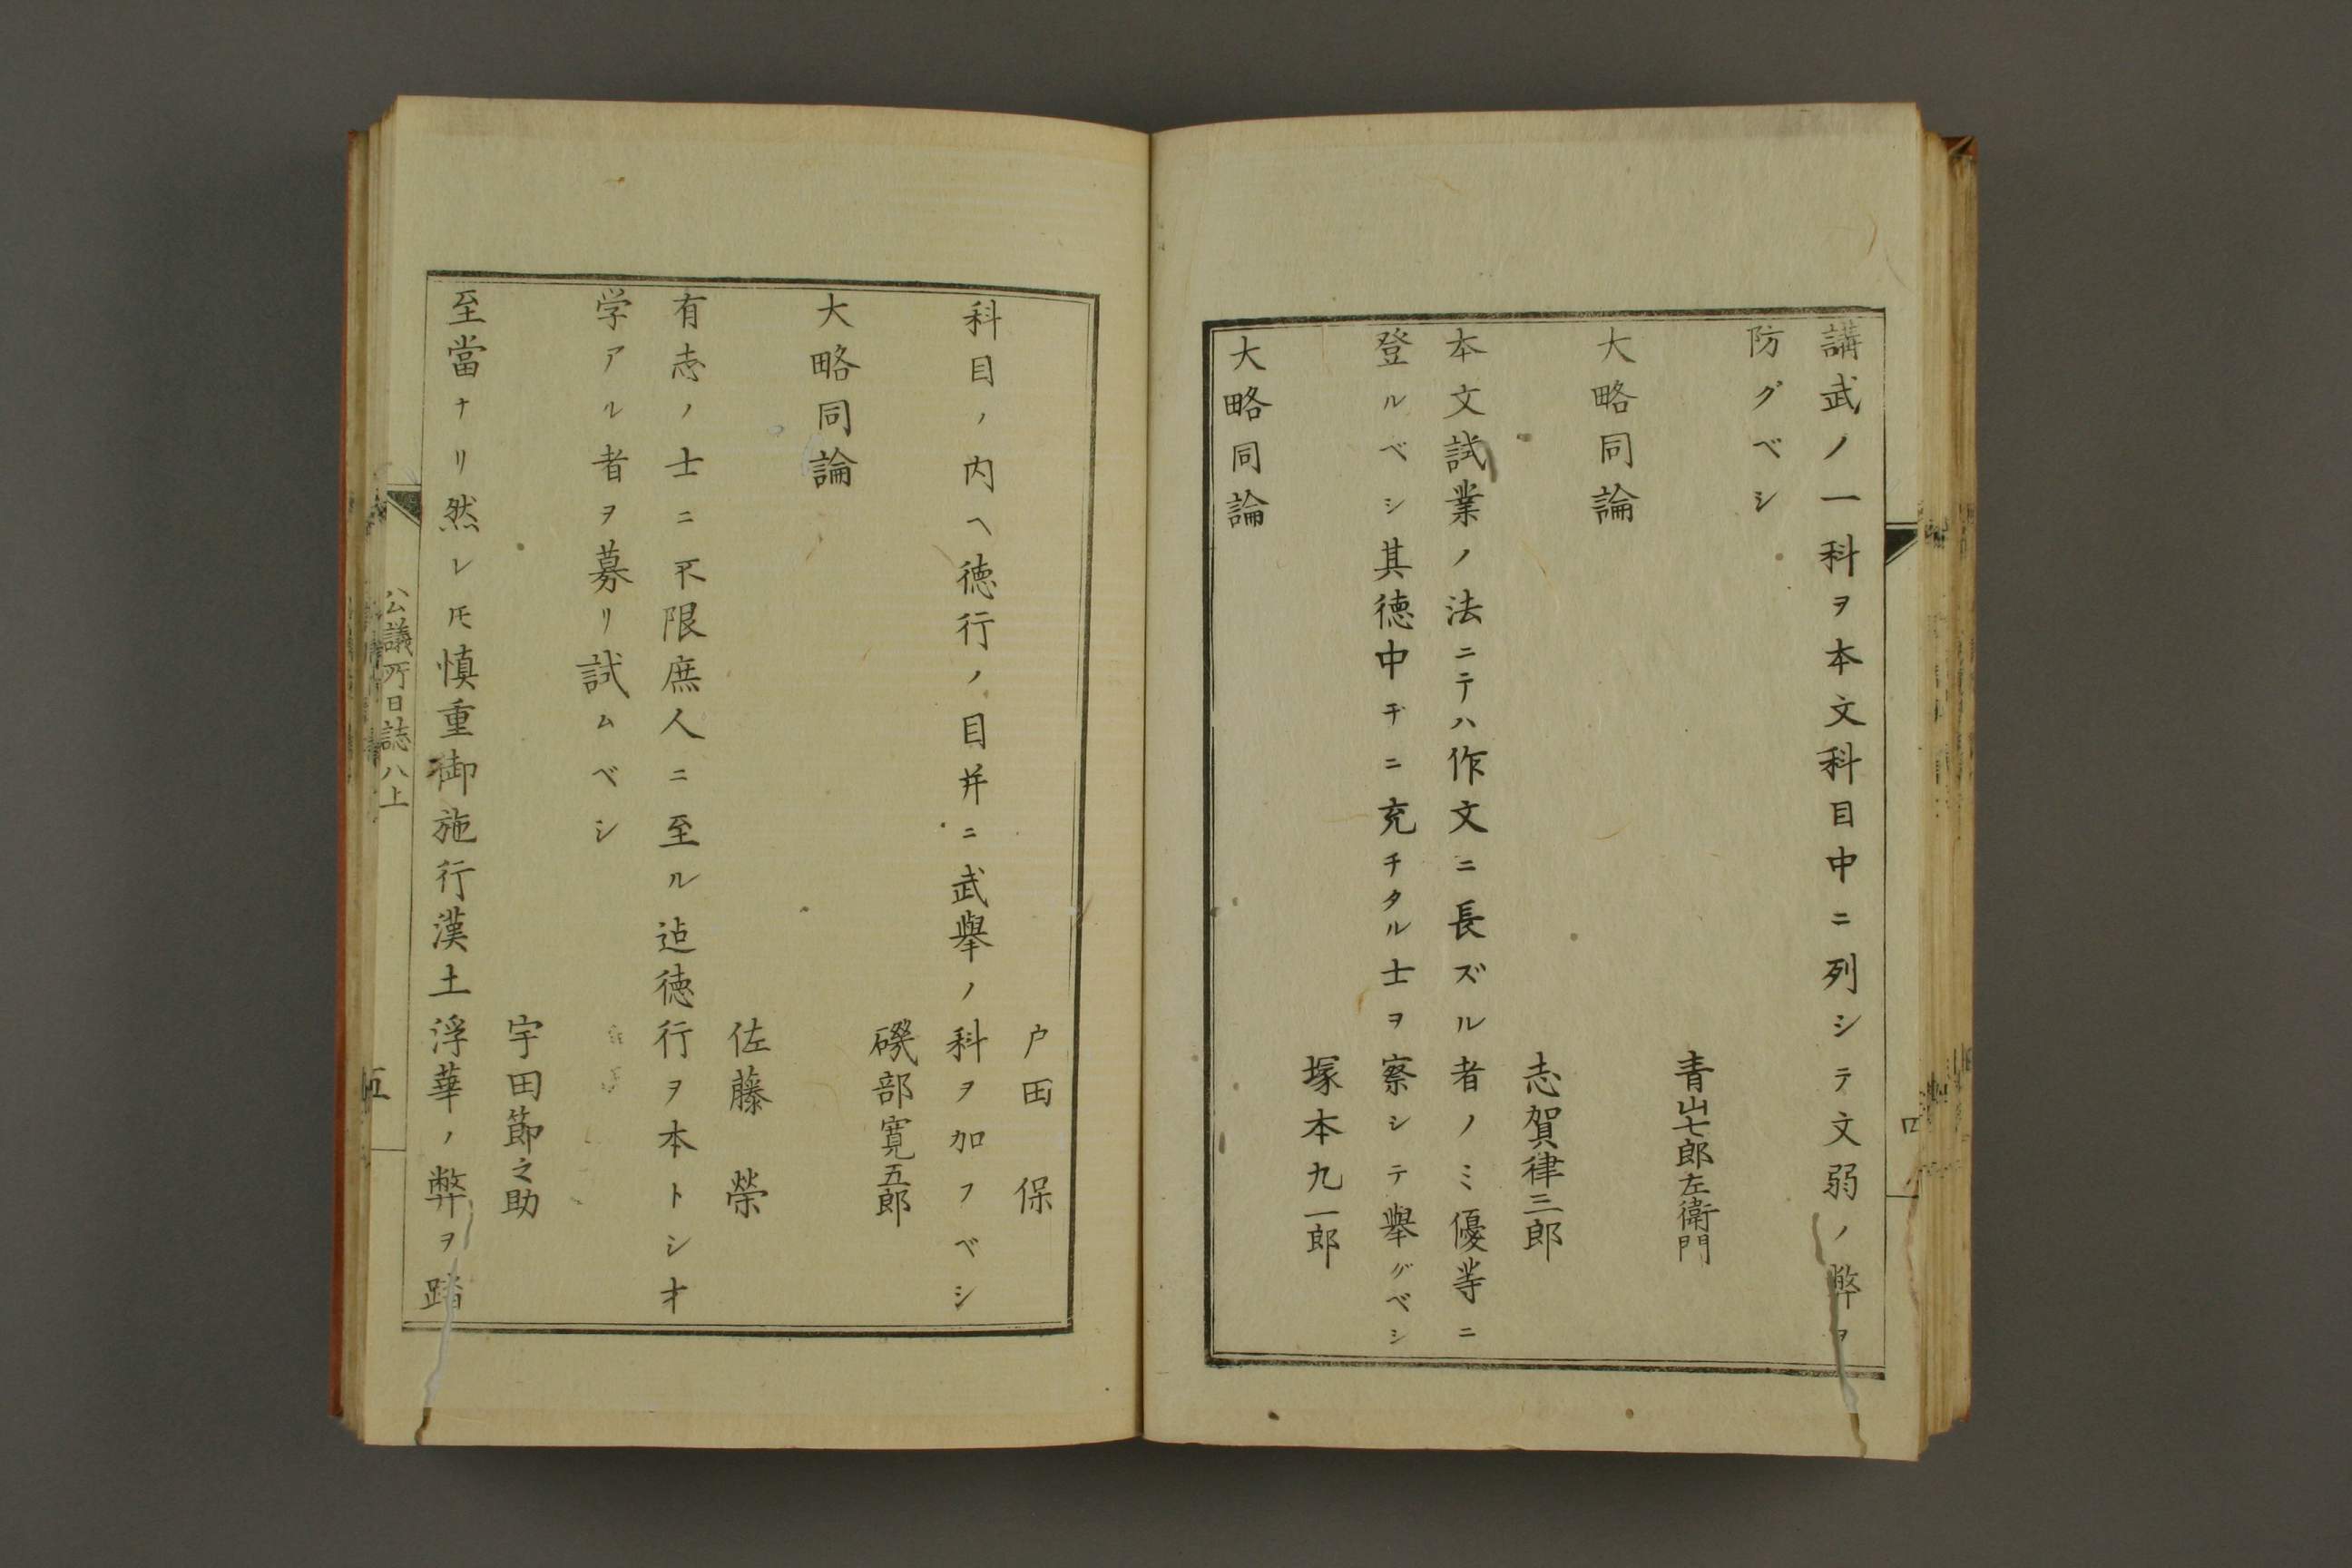 講武ノ一科ヲ本文科目中ニ列シテ文弱ノ弊ヲ
防グベシ
青山七郎左衛門
大略同論
志賀律三郎
本文試業ノ法ニテハ作文ニ長ズル者ノミ優等ニ
登ルベシ其徳中ヂニ充チタル士ヲ察シテ擧グベシ
塚本九一郎
大略同論
四
戸田保
科目ノ内ヘ徳行ノ目并ニ武擧ノ科ヲ加フベシ
磯部寛五郎
大略同論
佐藤榮
有志ノ士ニ不限庶人ニ至ル迠徳行ヲ本トシオ
学アル者ヲ募リ試ムベシ
宇田節之助
至當ナリ然レ𪜈慎重御施行漢土浮華ノ弊ヲ踏
公議所日誌八上
五